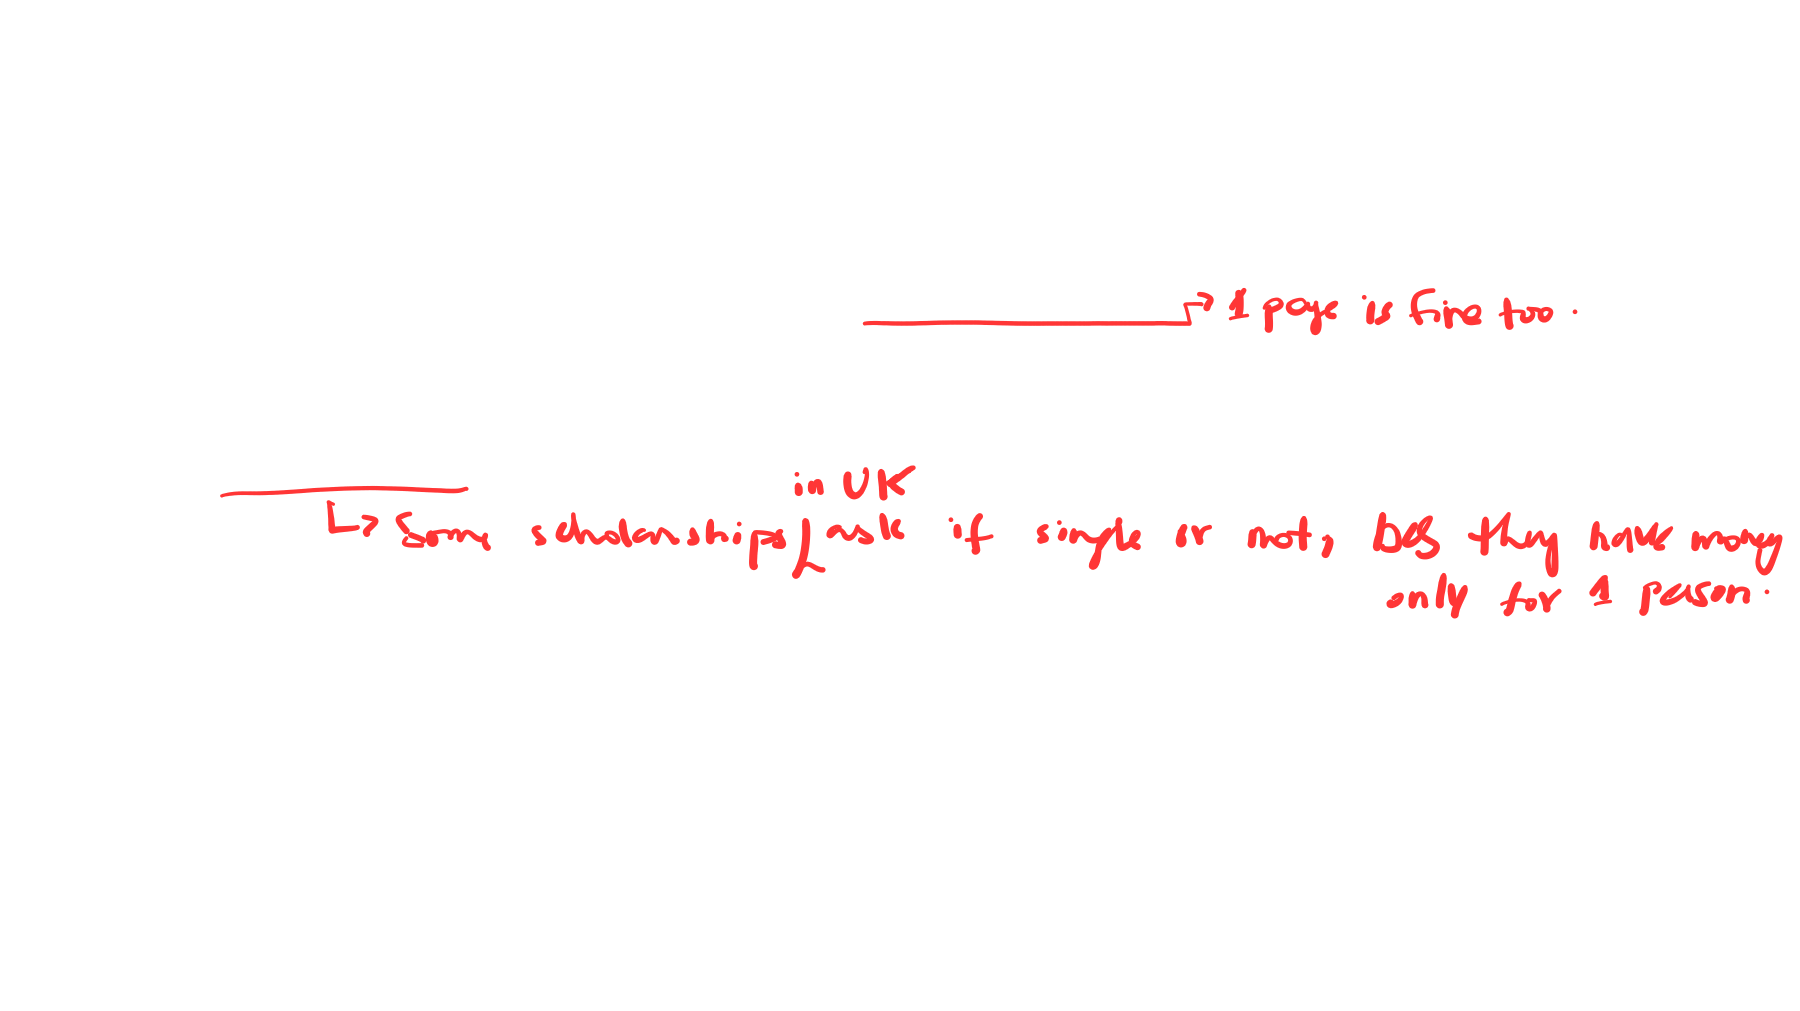 1 page is fine too.
in UK
Some scholarships ask if single or not, bcs they have money
only for 1 person.